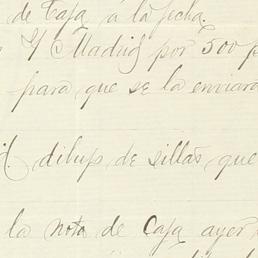 de Caja á la fecha.
Madrid por 500 p
para que se la enviara
dibujs de sillas que
la nota de Caja ayer